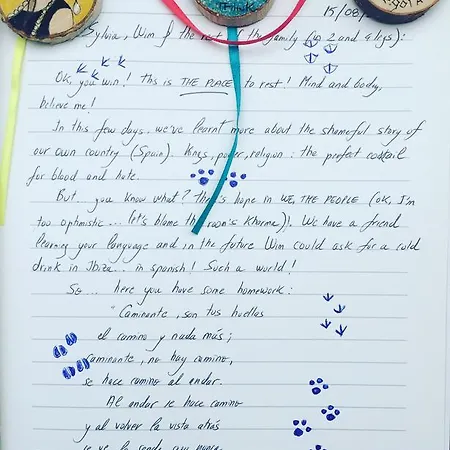 THINK
15/08/
Sylvia, Wim & the rest of the family (in 2 and 4 legs):
Ok, you win! This is THE PLACE to rest! Mind and body,
believe me!
In this few days, we've learnt more about the shameful story of
our own country (Spain). Kings, power, religion: the perfect cocktail
for blood and hate.
But.. you know what? There's hope in WE, THE PEOPLE (OK, I'm
too optimistic... let's blame the room's Kharma)). We have a friend
learning your language and in the future Wim could ask for a cold
drink in Ibiza... in spanish! Such a world!
So... here you have some homework:
"Caminante, son tus huellas
el camino y nada más;
caminante, no hay camino,
se hace camino al andar.
Al andar se hace camino
y al volver la vista atrás
se ve la senda que nunca